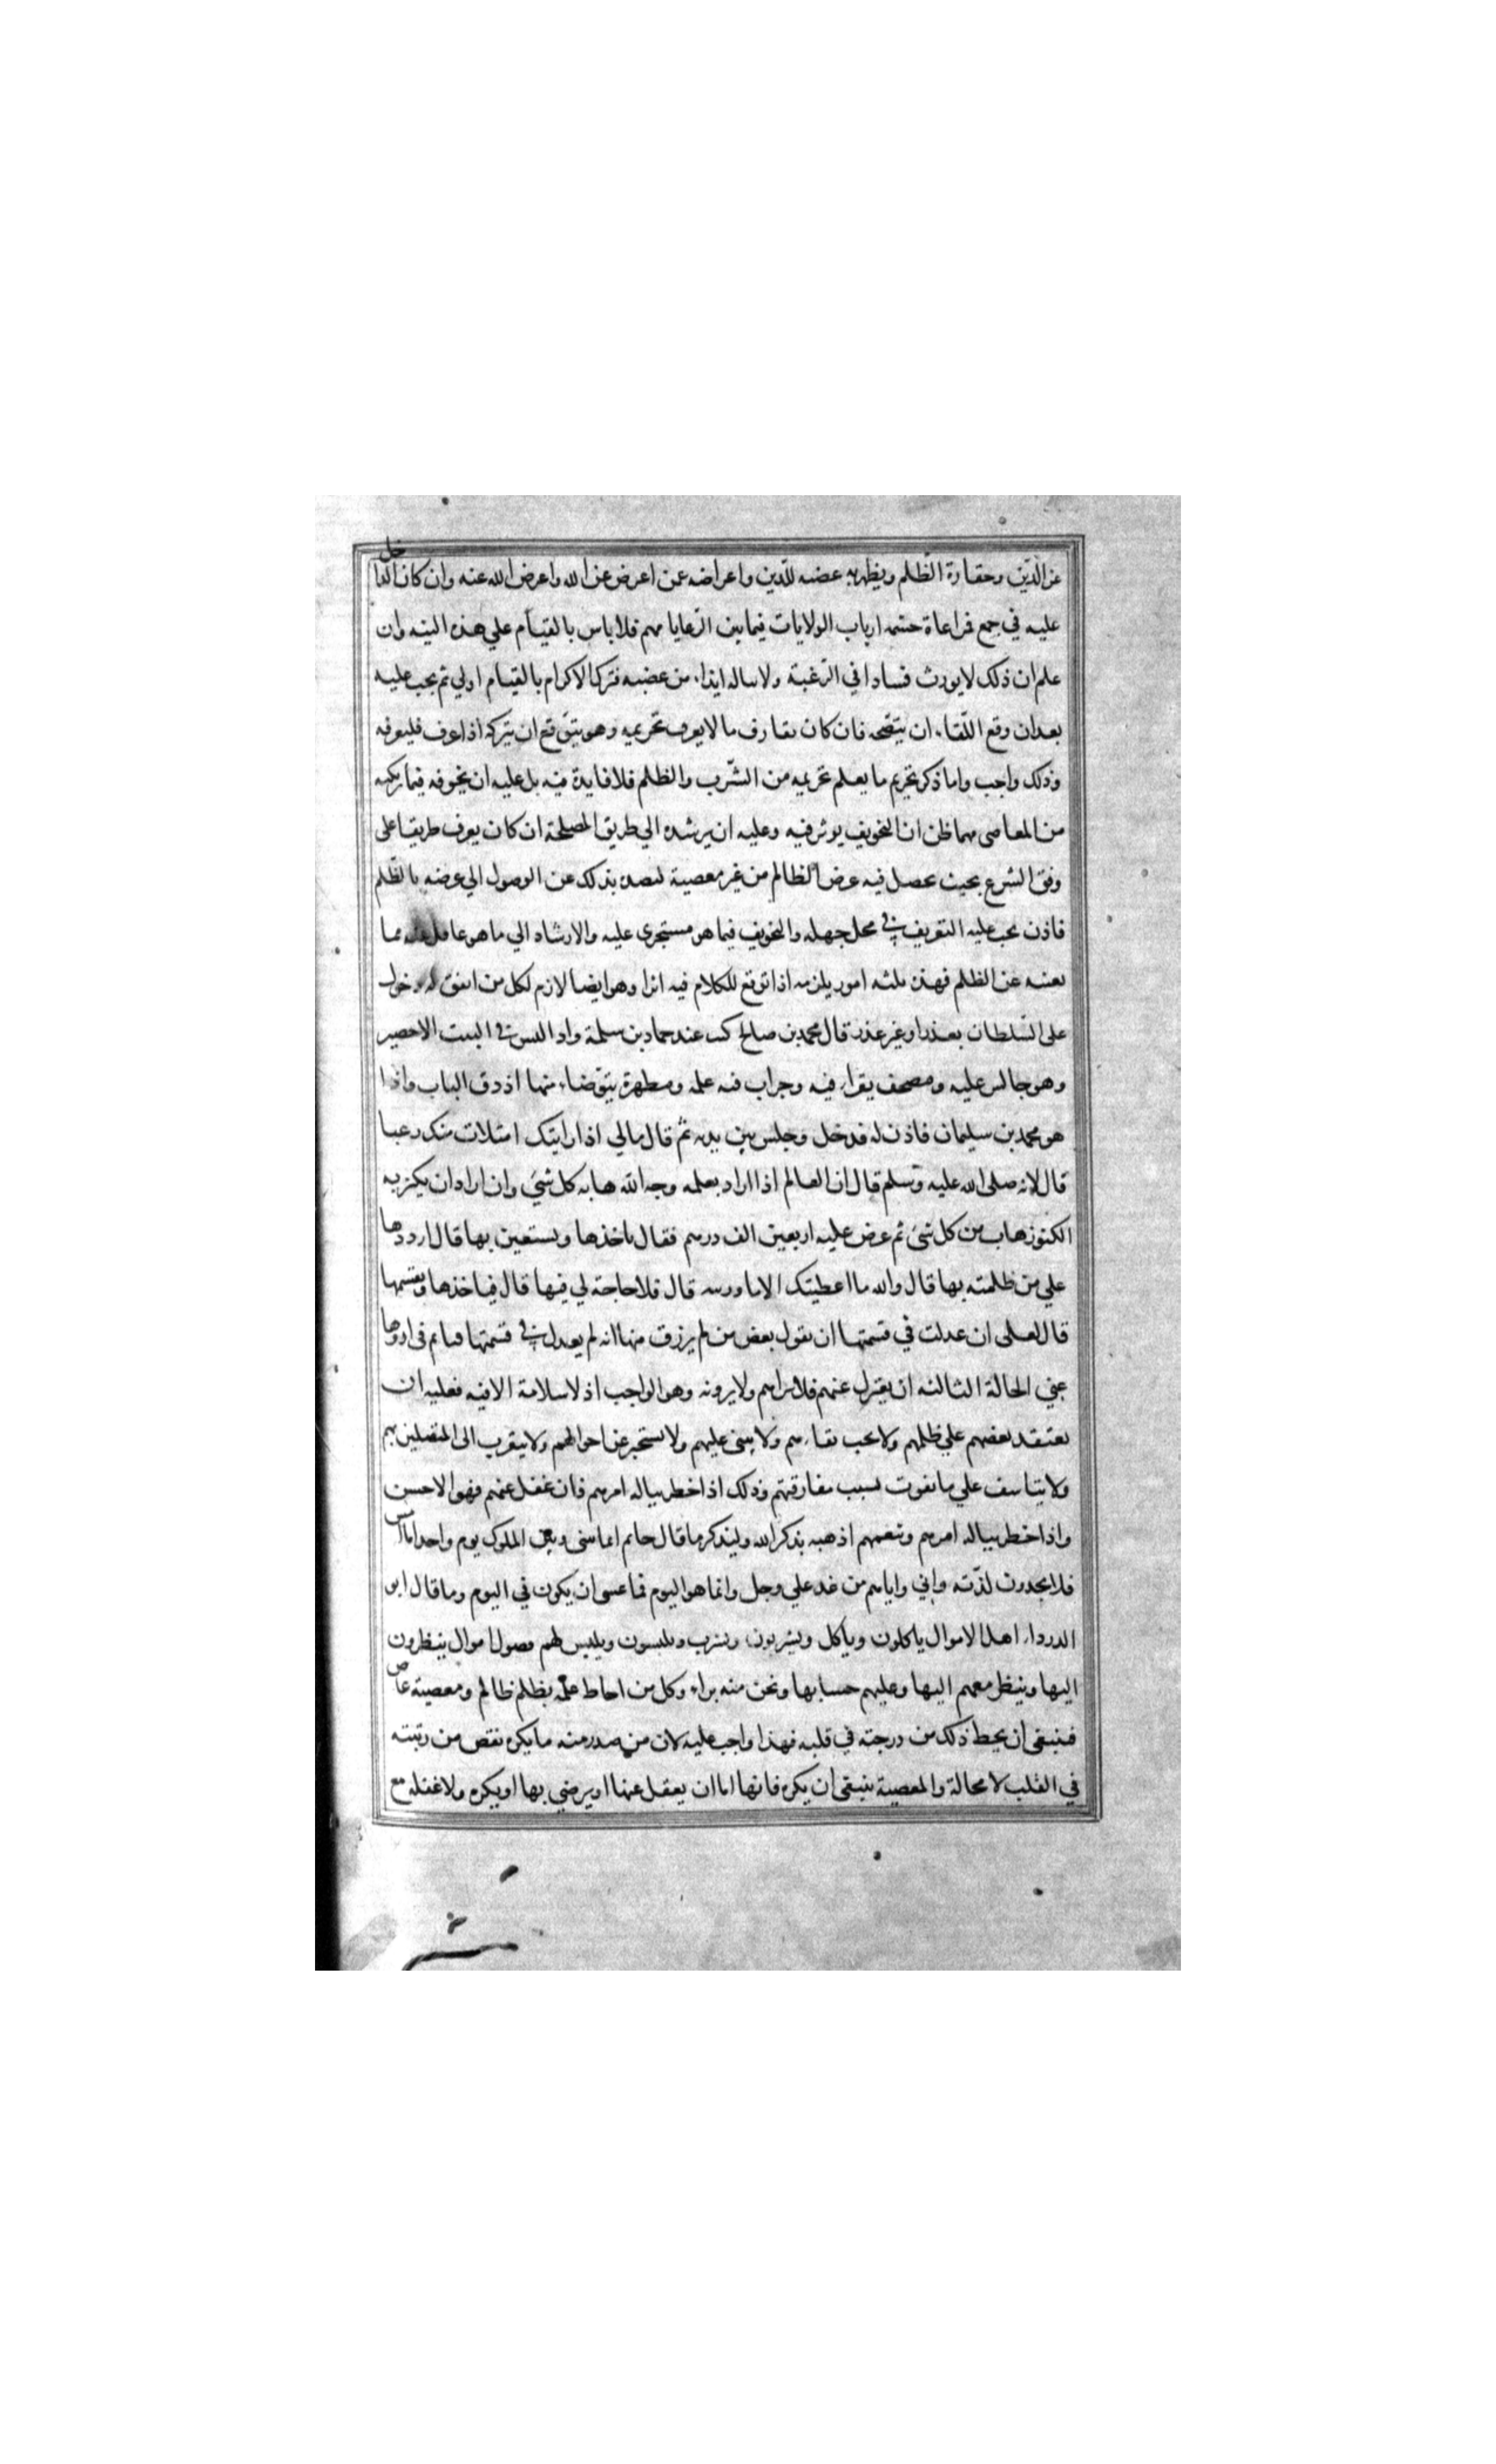 عز الدين وحقارة الظلم ويظهر به غضبه للدين واعراضه عن اعرض عن الله واعرض الله عنه وان كان الداخل
عليه في جمع فراعاة حشمه ارباب الولايات فيما بين الرعايا مهم فلا باس بالقيام علي هذه النيه وان
علم ان ذلك لا يورث فسادا في الرغبة ولا ساله ايذاء من غضبه فترك الاكرام بالقيام اولي ثم يجب عليه
بعد ان وقع اللقاء ان ينصحه فان كان يقارف ما لا يعرف تحريمه وهو يتوقع ان يتركه اذا عرف فليعرفه
وذلك واجب واما ذكر تحريم ما يعلم تحريمه من الشرب والظلم فلا فايدة فيه بل عليه ان يخوفه فيما يركبه
من المعاصي مهما ظن ان التخويف يوثر فيه وعليه ان يرشده الي طريق المصلحة ان كان يعرف طريقا علي
وفق الشرع بحيث يحصل فيه غرض الظالم من غير معصية ليصده بذلك عن الوصول الي غرضه بالظلم
فاذن يجب عليه التعريف في محل جهله والتخويف فيما هو مستجري عليه والارشاد الي ما هو غافل عنه مما
يغنيه عن الظلم فهذه ثلثه امور يلزمه اذا توقع للكلام فيه اثرا وهو ايضا لازم لكل من اتفق له دخول
علي السلطان بعذر او غير عذر قال محمد بن صالح كنت عند حماد بن سلمة واذا ليس في البيت الا حصير
وهو جالس عليه ومصحف يقراء فيه وجراب فيه علمه ومطهرة يتوضاء منها اذ دق الباب واذا
هو محمد بن سليمان فاذن له فدخل وجلس بين يديه ثم قال مالي اذا رايتك امتلات منك رعبا
قال لانه صلي الله عليه وسلم قال ان العالم اذا اراد بعلمه وجه الله هابه كل شيء وان اراد ان يكنز به
الكنوز هاب من كل شيء ثم عرض عليه اربعين الف درهم فقال تاخذها وتستعين بها قال ارددها
علي من ظلمته بها قال والله ما اعطيتك الا ما ورثته قال فلا حاجة لي فيها قال فياخذها ويقسمها
قال لعلي ان عدلت في قسمتها ان يقول بعض من لم يرزق منها انه لم يعدل في قسمتها فياثم في اروها
عني الحالة الثالثه ان يعتزل عنهم فلا يراهم ولا يرونه وهو الواجب اذ لا سلامة الا فيه فعليه ان
يعتقد بغضهم علي ظلمهم ولا يحب بقاءهم ولا يثني عليهم ولا يستخبر عن احوالهم ولا يتقرب الي المتصلين بهم
ولا يتاسف علي ما يفوت بسبب مفارقتهم وذلك اذا خطر بباله امرهم فان غفل عنهم فهو الاحسن
واذا خطر بباله امرهم وتنعمهم اذهبه بذكر الله وليذكر ما قال حاتم انما بيني وبين الملوك يوم واحد اما امس
فلا يجدون لذته واني واياهم من غد علي وجل وانما هو اليوم فما عسي ان يكون في اليوم وما قال ابو
الدرداء اهل الاموال ياكلون وياكل ويشربون ويشرب ويلبسون ويلبس لهم فصول اموال ينظرون
اليها وينظر معهم اليها وعليهم حسابها ونحن منه براء وكل من احاط علمه بظلم ظالم ومعصية عاص
فينبغي ان يحط ذلك من درجته في قلبه فهذا واجب عليه لان من صدر منه ما يكره نقص من رتبته
في القلب لا محالة والمعصية ينبغي ان يكره فانها اما ان يغفل عنها او يرضي بها او يكره ولا غفله مع